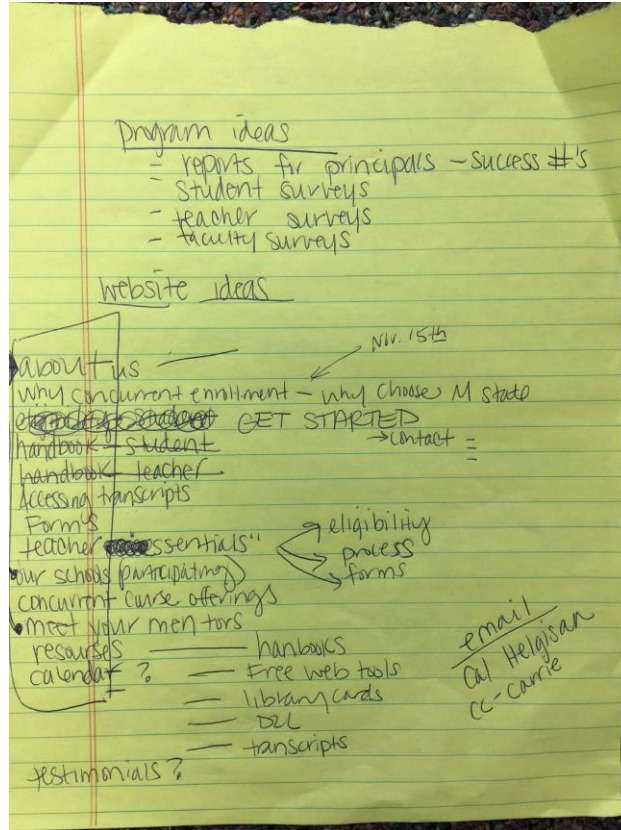 program ideas
= reports for principals - success #'s
student surveys
- teacher surveys
- faculty surveys
website ideas
Nov. 15th
about us
why concurrent enrollment - why choose M state
GET STARTED
→ contact =
handbook - student
handbook - teacher
Accessing transcripts
Forms
teacher essentials"
eligibility
process
forms
our schools (participating)
concurrent curse offerings
meet your mentors
resourses — hanbooks
calendar ? — Free web tools
— library cards
— D2L
— transcripts
testimonials?
email
Cal Helgisan
cc-carrie